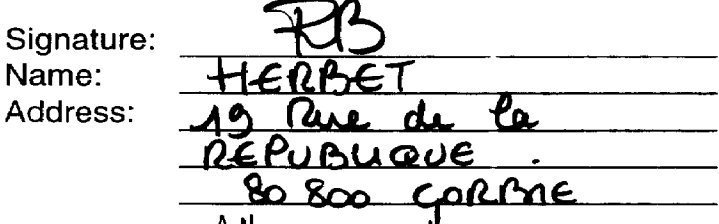 Signature: RB
Name: HERBET
Address: 19 Rue de la
REPUBLIQUE .
80 800 CORBIE